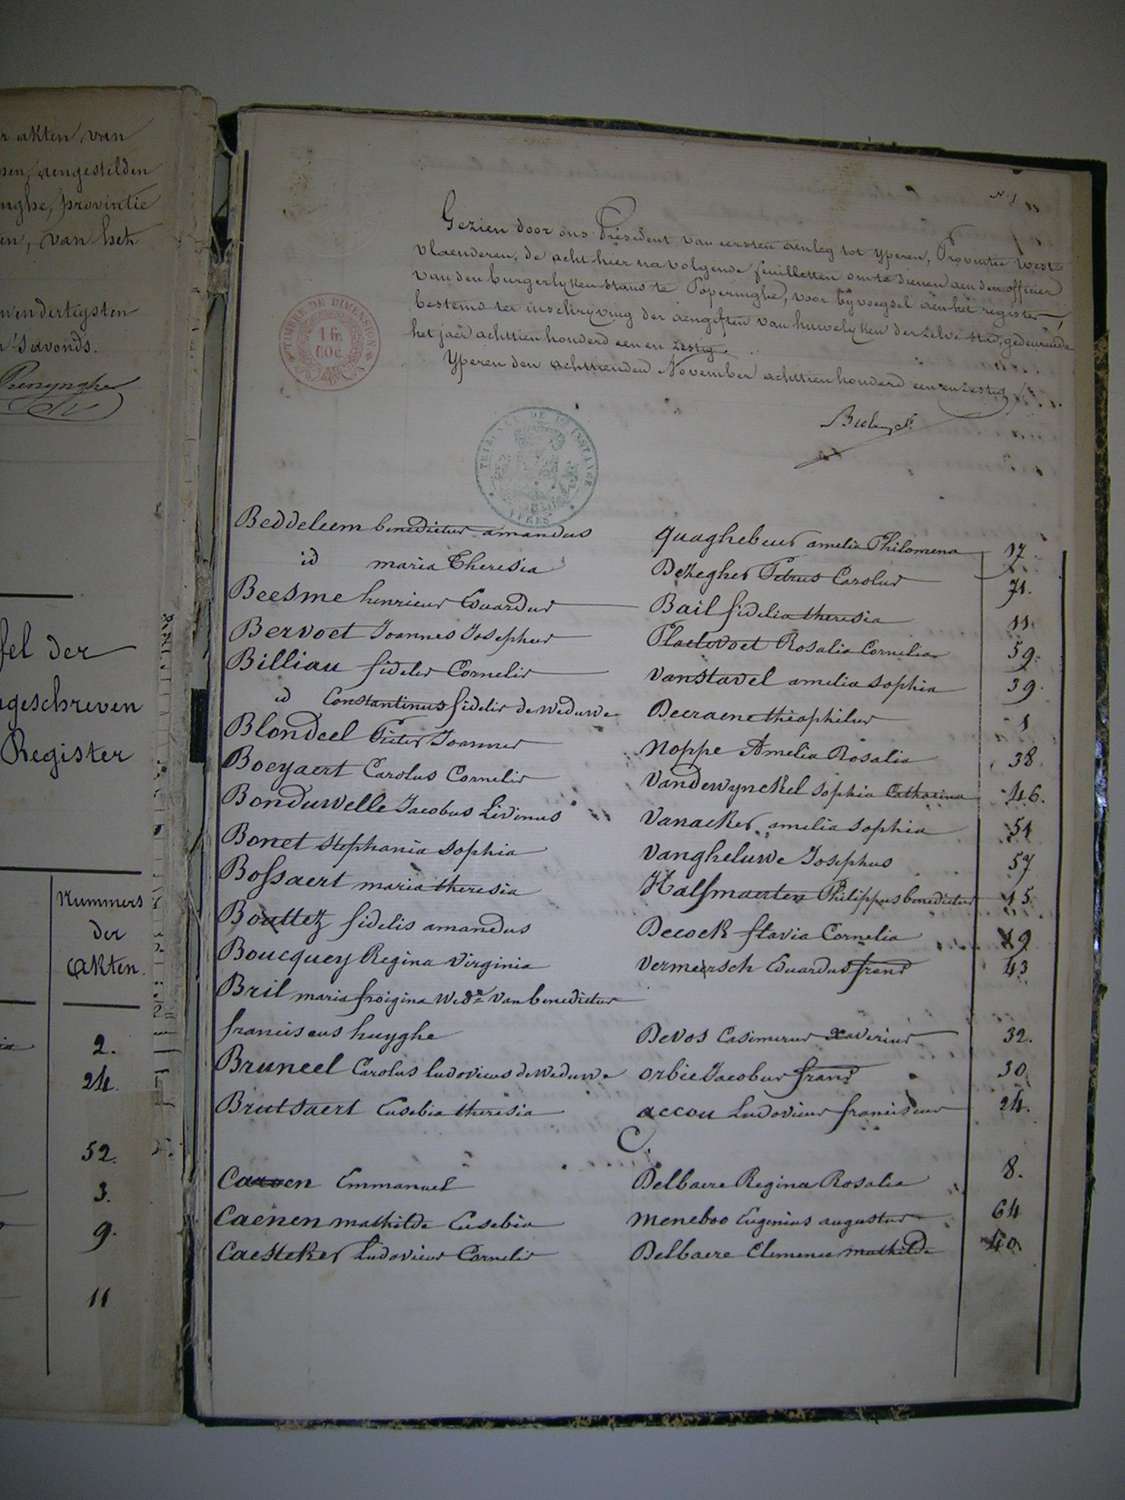 r akten van
pen, aengestelden
nghe, provintie
en, van het
wendertigsten
Savonds.
fel der
ngeschreven
Register
Nummers
der
Akten.
2.
24.
52.
3.
9.
11
Nº 1
Gezien door ons Président van eersten aenleg tot Yperen, Provintie West
Vlaenderen, de acht hier na volgende feuilletten om te dienen aen den officier
van den burgerlyken stand te Poperinghe, voor byvoegsel aen het register
bestemd ter inschryving der aengiften van huwelyken der zelve stad, gedeurende
het jaer achttien honderd een en zestig.
Yperen den achttienden November achttien honderd een en zestig
TIMBRE DE DIMENSION
TRIBUNAL DE 1E INSTANCE
YPRES
Beddeleem benedictus amandus Quaghebeur amelia Philomena 17.
id maria Theresia Dezegher Petrus Carolus 71.
Beesme henricus Eduardus Bail fidelia theresia 11.
Bervoet Joannes Josephus Plaetevoet Rosalia Cornelia 59.
Billiau fidelis Cornelis Vanstavel amelia sophia 39.
id Constantinus fidelis de Weduwe Decraene theophilus 1
Blondeel Pieter Joannes Noppe Amelia Rosalia 38.
Boeyaert Carolus Cornelis Vandewynckel sophia Catharina 46.
Bonduwelle Jacobus Livinus Vanacker amelia sophia 54
Bonet stephania sophia Vangheluwe Josephus 57
Bossaert maria theresia Halsmaerten Philippus benedictus 45.
Bouttez fidelis amandus Decock flavia Cornelia 19
Boucquey Regina Virginia Vermeersch Eduardus frans 43
Bril maria Wede van benedictus
franciscus huyghe Devos Casimirus xaverius 32.
Bruneel Carolus ludovicus de Weduwe Orbie Jacobus frans 30.
Brutsaert Eusebia theresia accou Ludovicus franciscus 24.
C.
Caenen Emmanuel Delbaere Regina Rosalia 8.
Caenen mathilde Eusebia Meneboo Eugenius augustus 64
Caesteker Ludovicus Cornelis Delbaere Clemence mathilde 40.